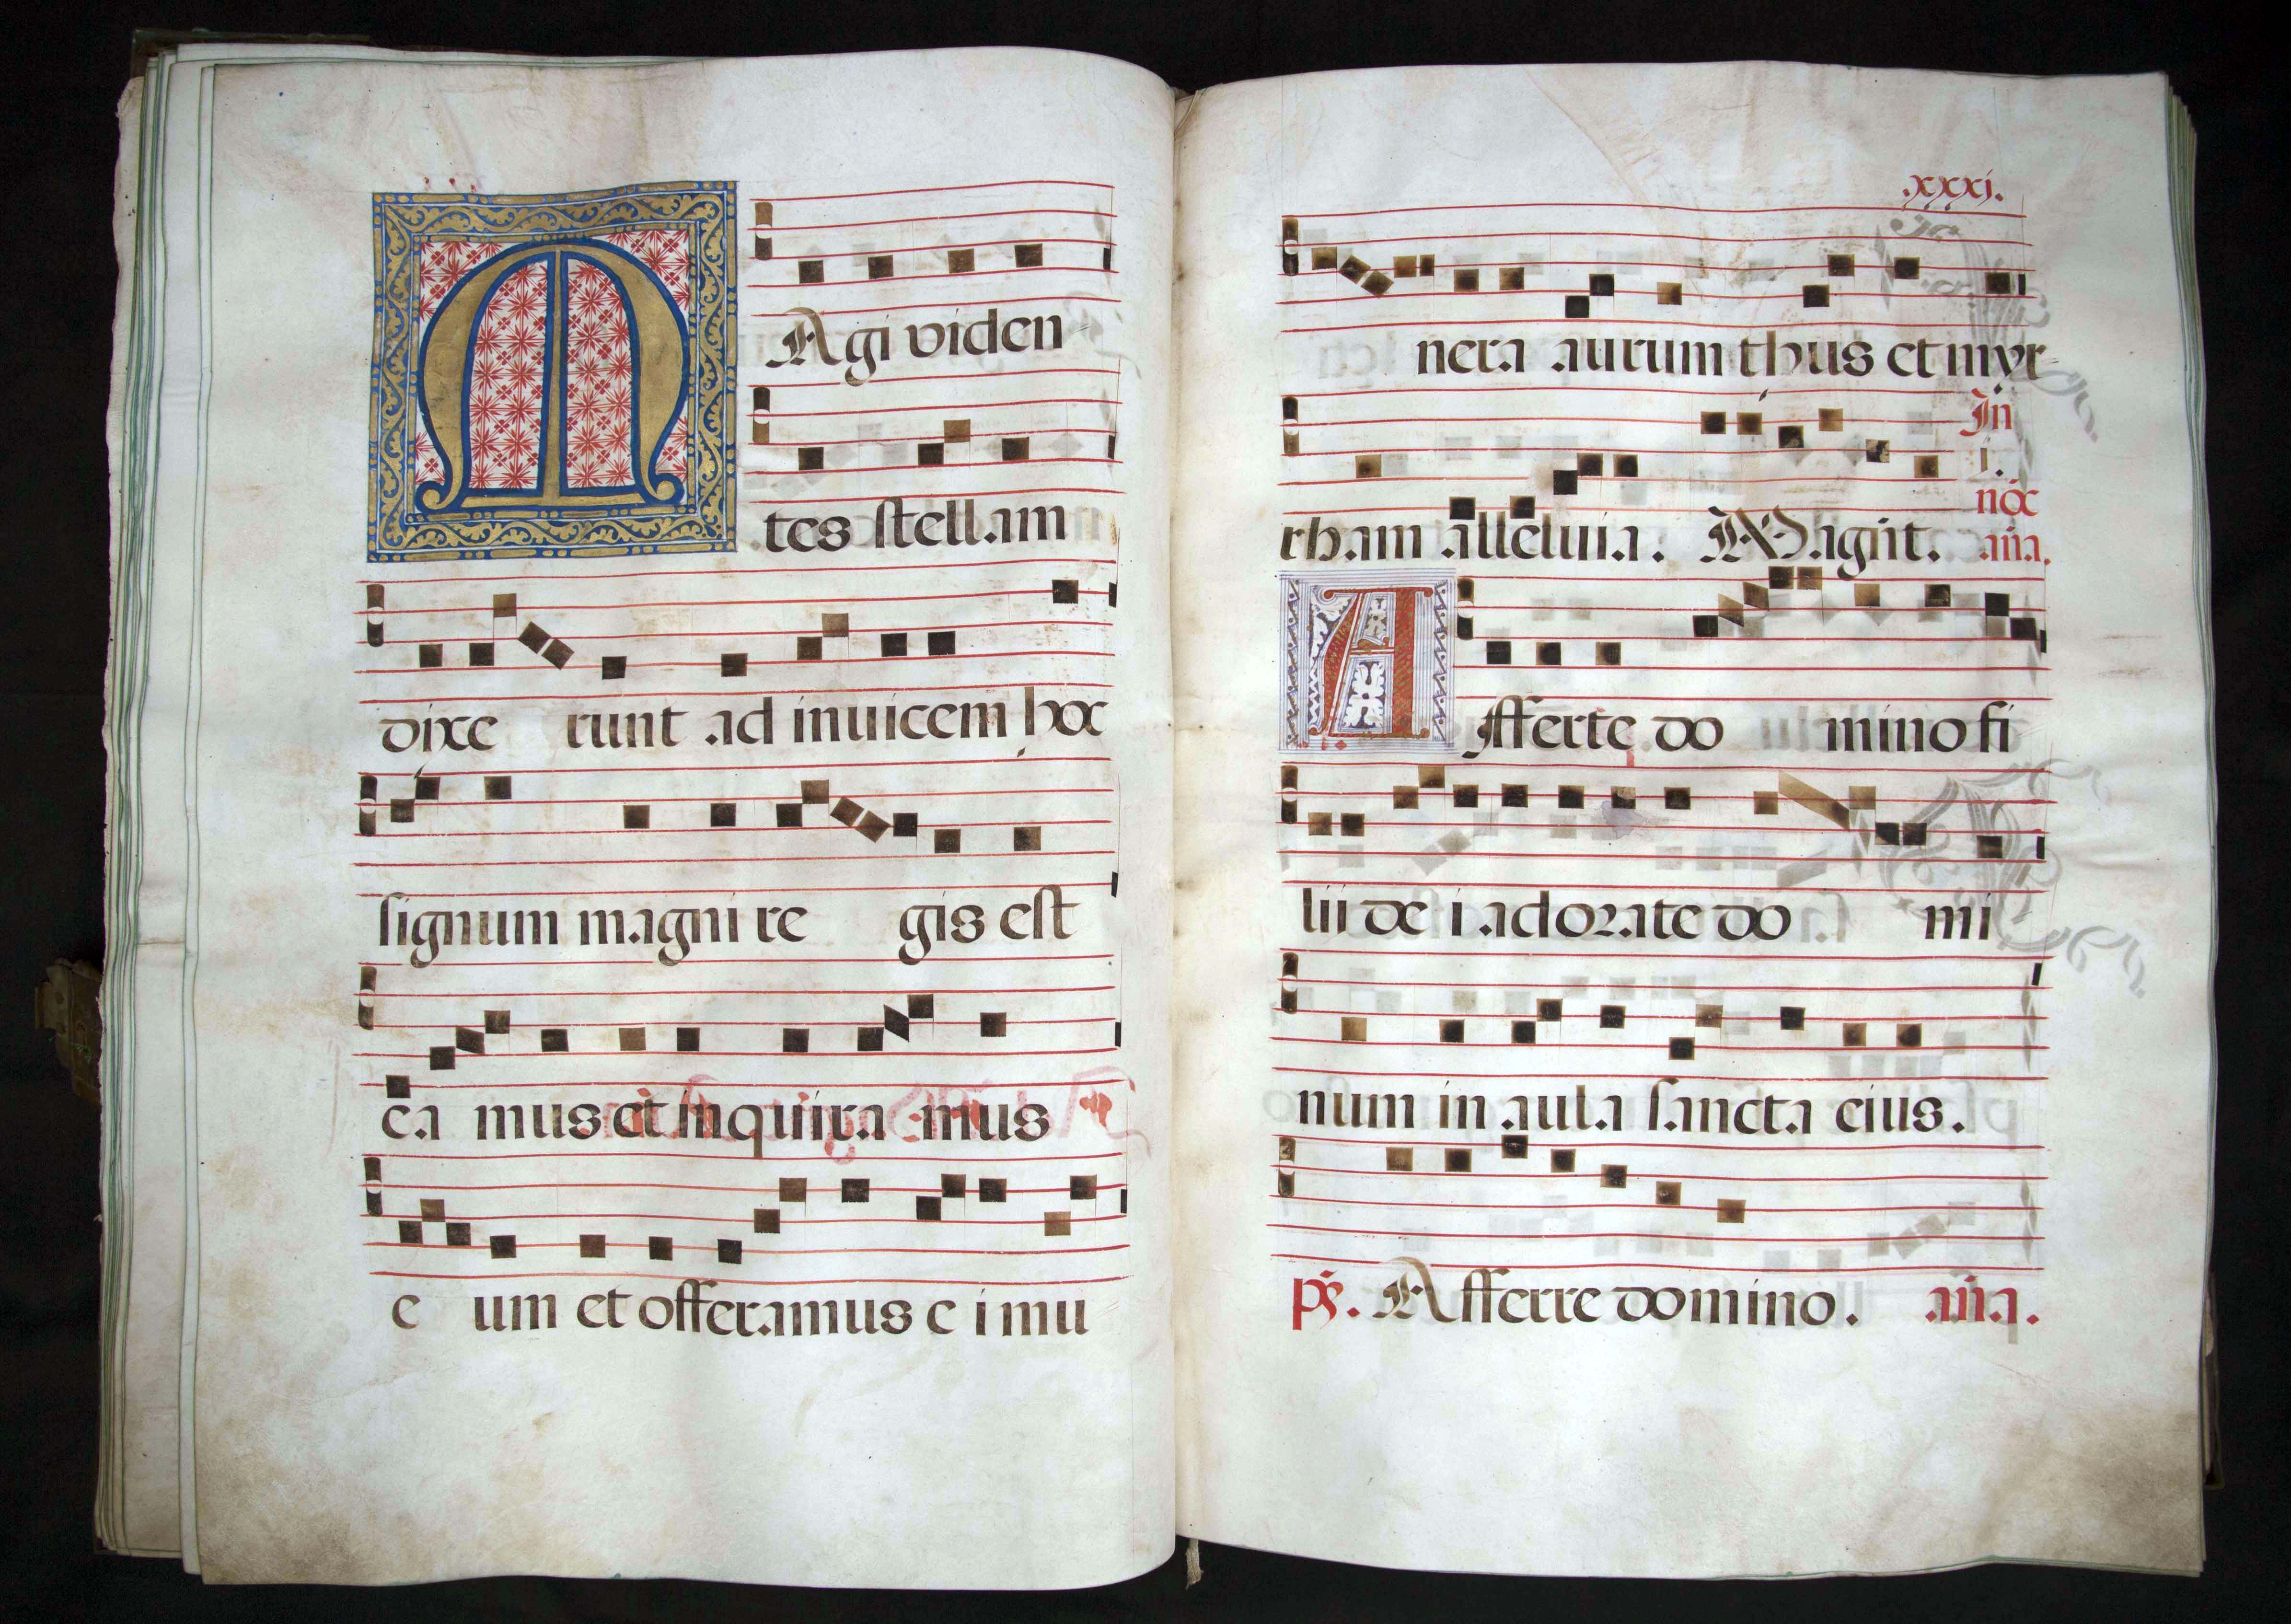 MAgi viden
tes stellam
dixe runt ad inuicem hoc
signum magni re gis est
ea mus et inquira mus
e um et offeramus e i mu
.xxxj.
nera aurum thus et myr-
In
j.
rham alleluia. Magnt. nóc
aña.
Afferte do mino fi
lii de i adorate do mi
num in aula sancta eius.
ps. Afferte domino. aña.